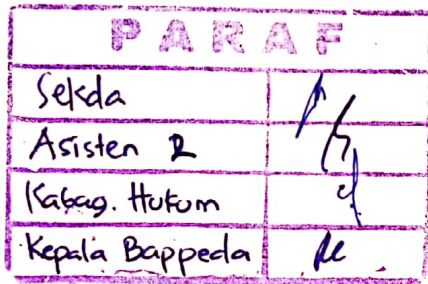 PARAF
Sekda
Asisten 2
Kabag. Hukum
Kepala Bappeda